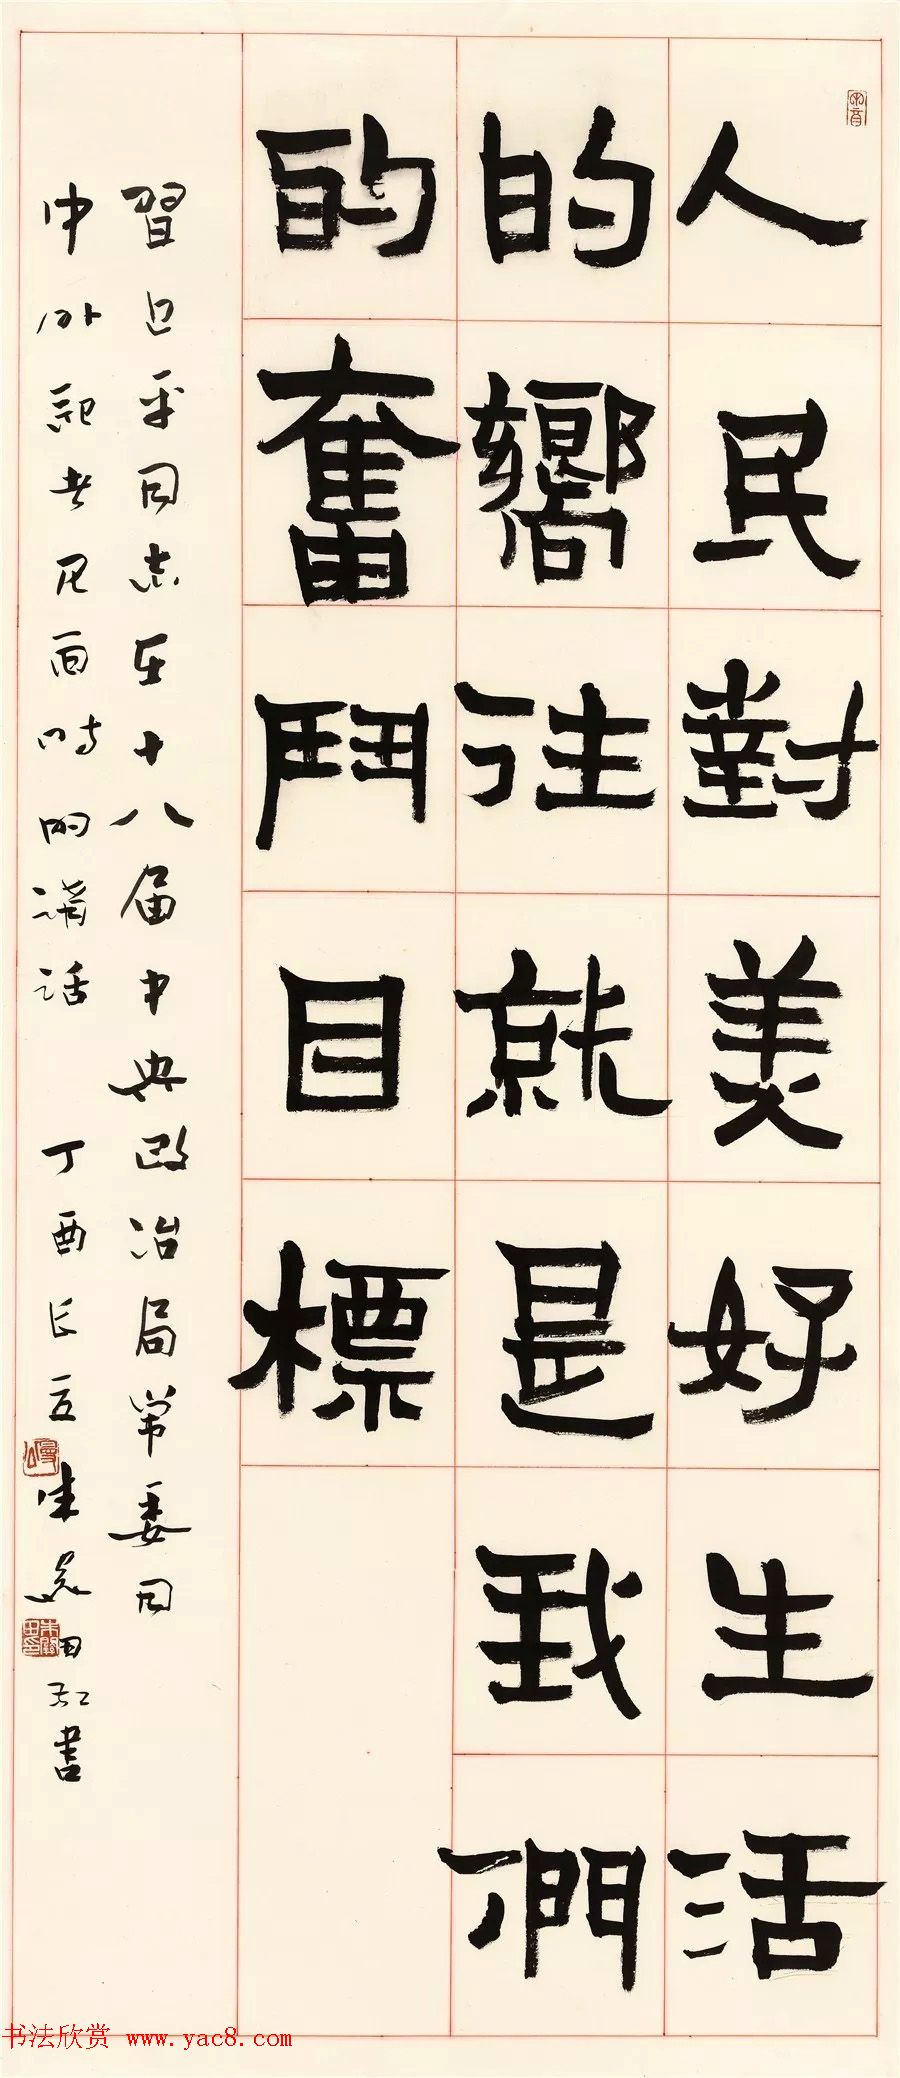 人民對美好生活
的嚮往就是我們
的奮鬥目標
習近平同志在十八届中央政治局常委同
中外記者見面時的講話 丁酉長 朱關田 書
书法欣赏 www.yac8.com